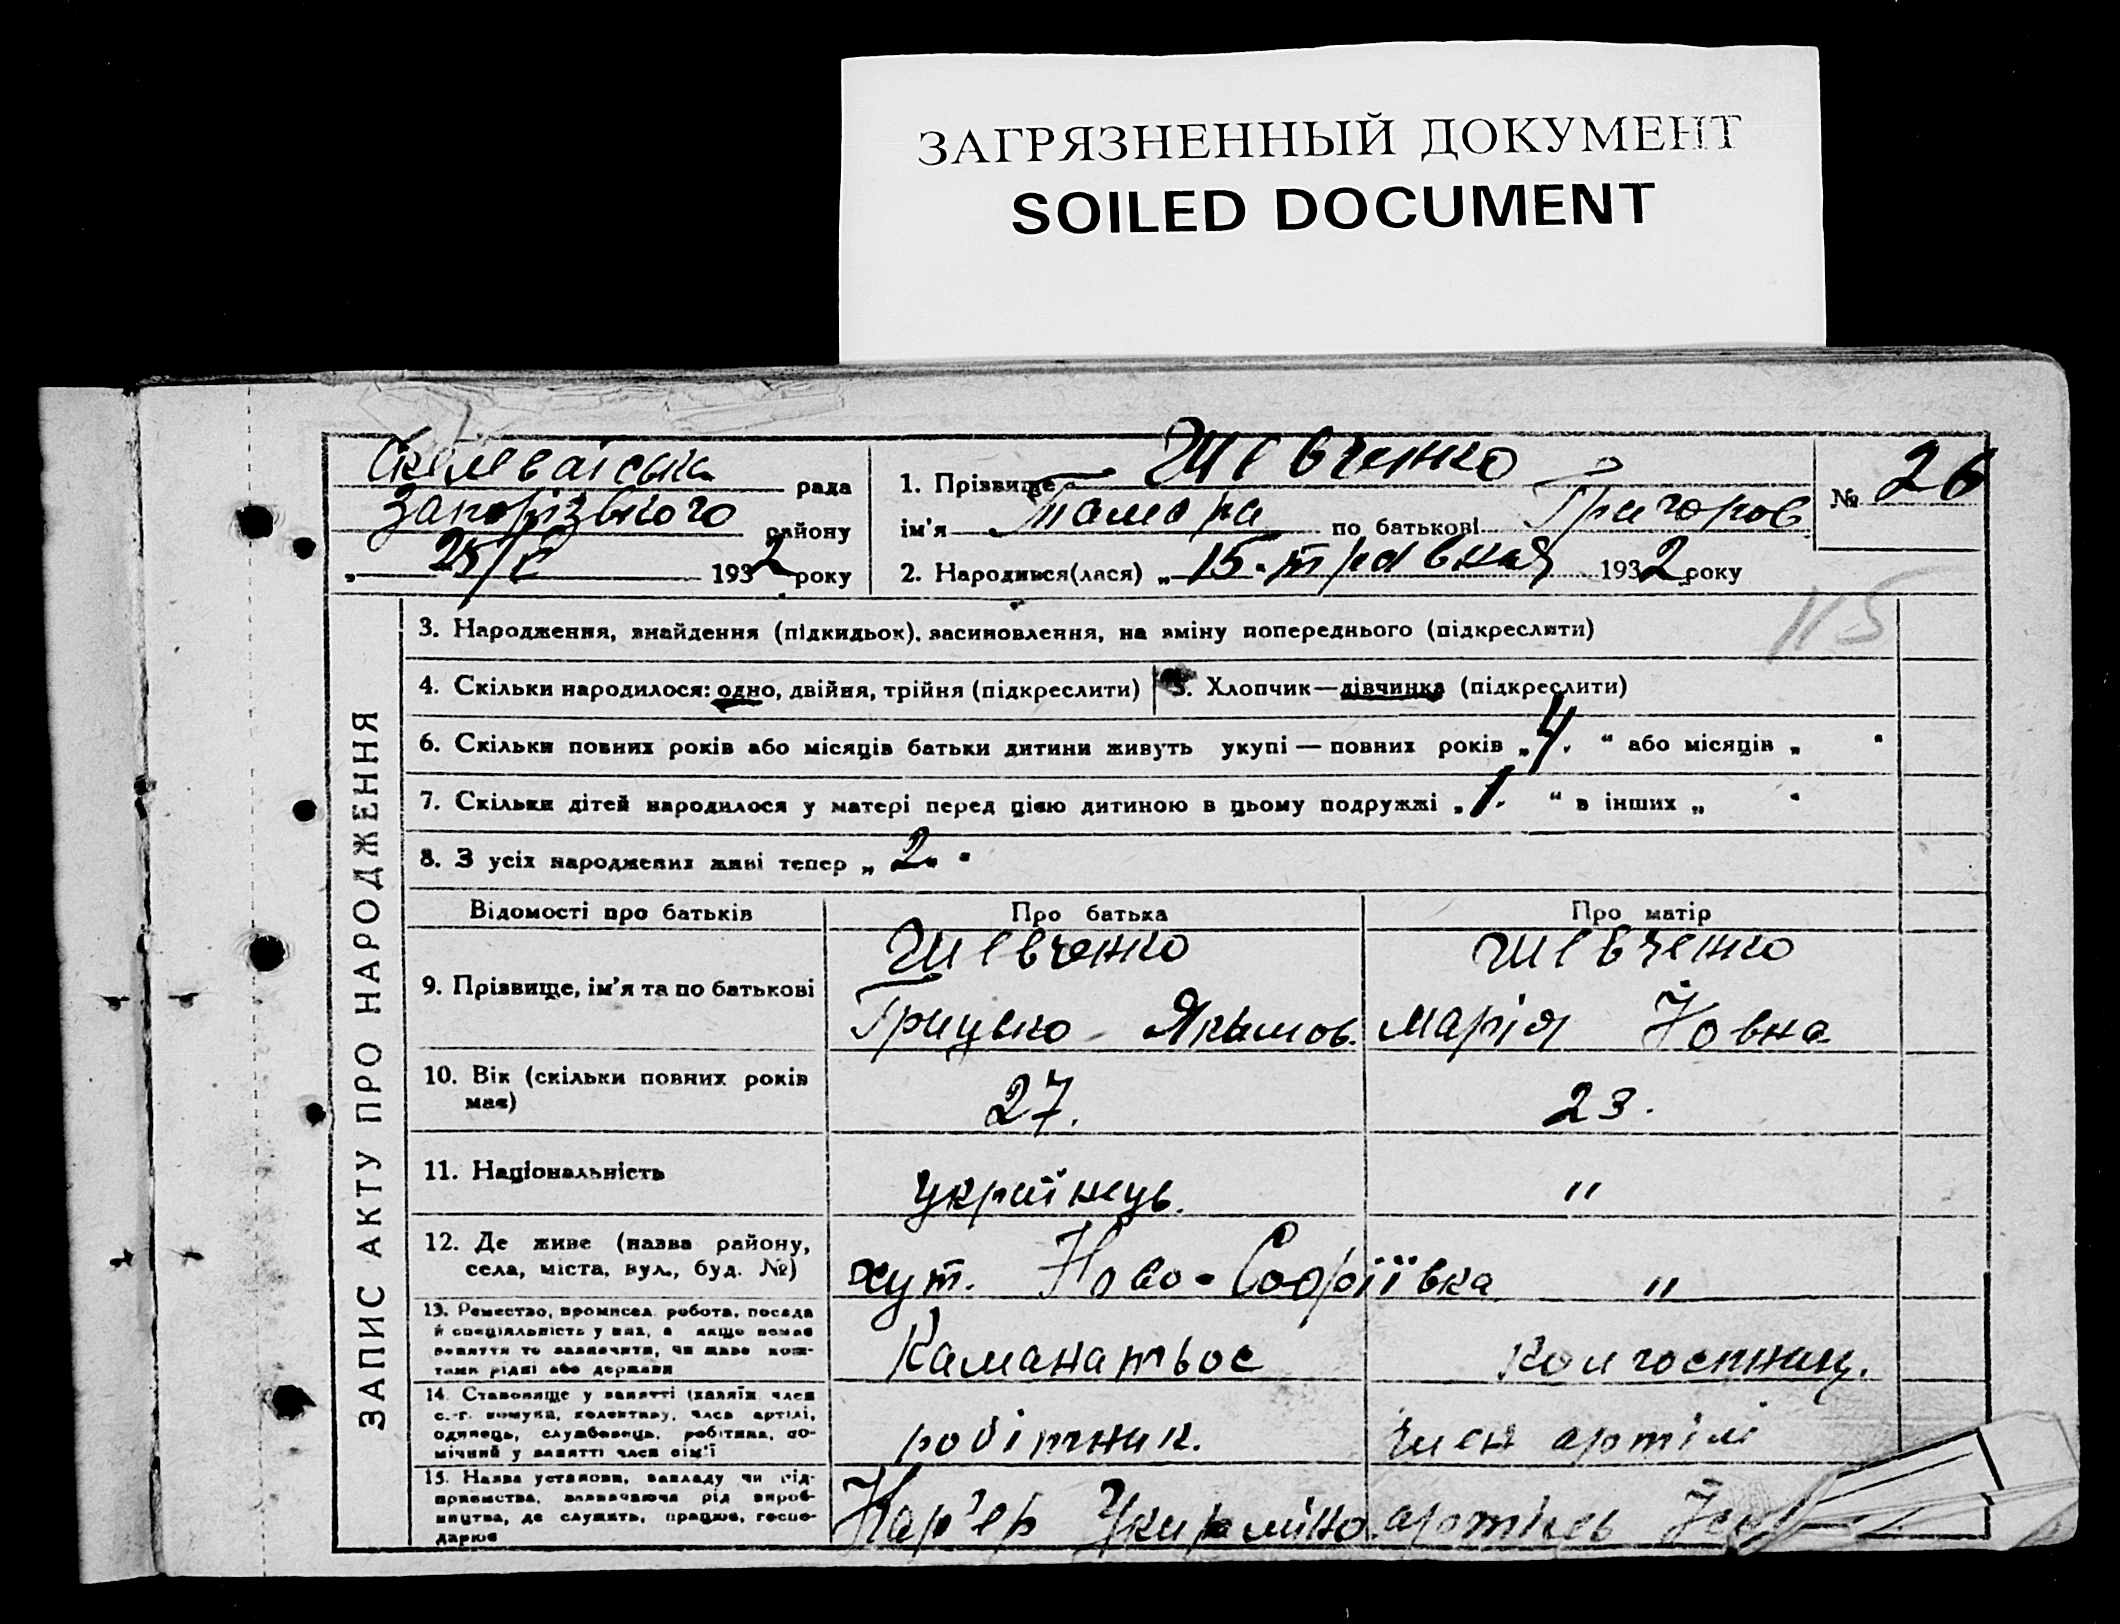 ЗАГРЯЗНЕННЫЙ ДОКУМЕНТ
SOILED DOCUMENT
рада
Запорізького району
„ 25/V 1932 року
1. Прізвище Шевченко
ім'я Тамара по батькові Григоров
2. Народився(лася) „15. травня 1932 року
№ 26
115
ЗАПИС АКТУ ПРО НАРОДЖЕННЯ
3. Народження, знайдення (підкидьок), засиновлення, на зміну попереднього (підкреслити)
4. Скільки народилося: одно, двійня, трійня (підкреслити) 5. Хлопчик—дівчинка (підкреслити)
6. Скільки повних років або місяців батьки дитини живуть укупі — повних років „4. “ або місяців „ “
7. Скільки дітей народилося у матері перед цією дитиною в цьому подружжі „1. “ в інших „ “
8. З усіх народжених живі тепер „ 2. “
Відомості про батьків Про батька Про матір
9. Прізвище, ім'я та по батькові
Шевченко
Грицько Якимов.
Шевченко
Марія Йовна
10. Вік (скільки повних років
має)
27.
23.
11. Національність
українець.
"
12. Де живе (назва району,
села, міста, вул., буд. №)
хут. Ново-Софіївка
"
13. Ремество, промисел, робота, посада
й спеціяльність у них, а якщо немає
заняття то зазначити, чи живе кош-
тами рідні або держави
колгоспниц.
14. Становище у занятті (хазяїн, член
с.-г. комуни, колективу, член артілі,
одинець, службовець, робітник, по-
мічний у занятті член сім'ї
робітник.
член артілі
15. Назва установи, закладу чи під-
приємства, зазначаючи рід вироб-
ництва, де служить, працює, госпо-
дарює
Кар'ер
артіль